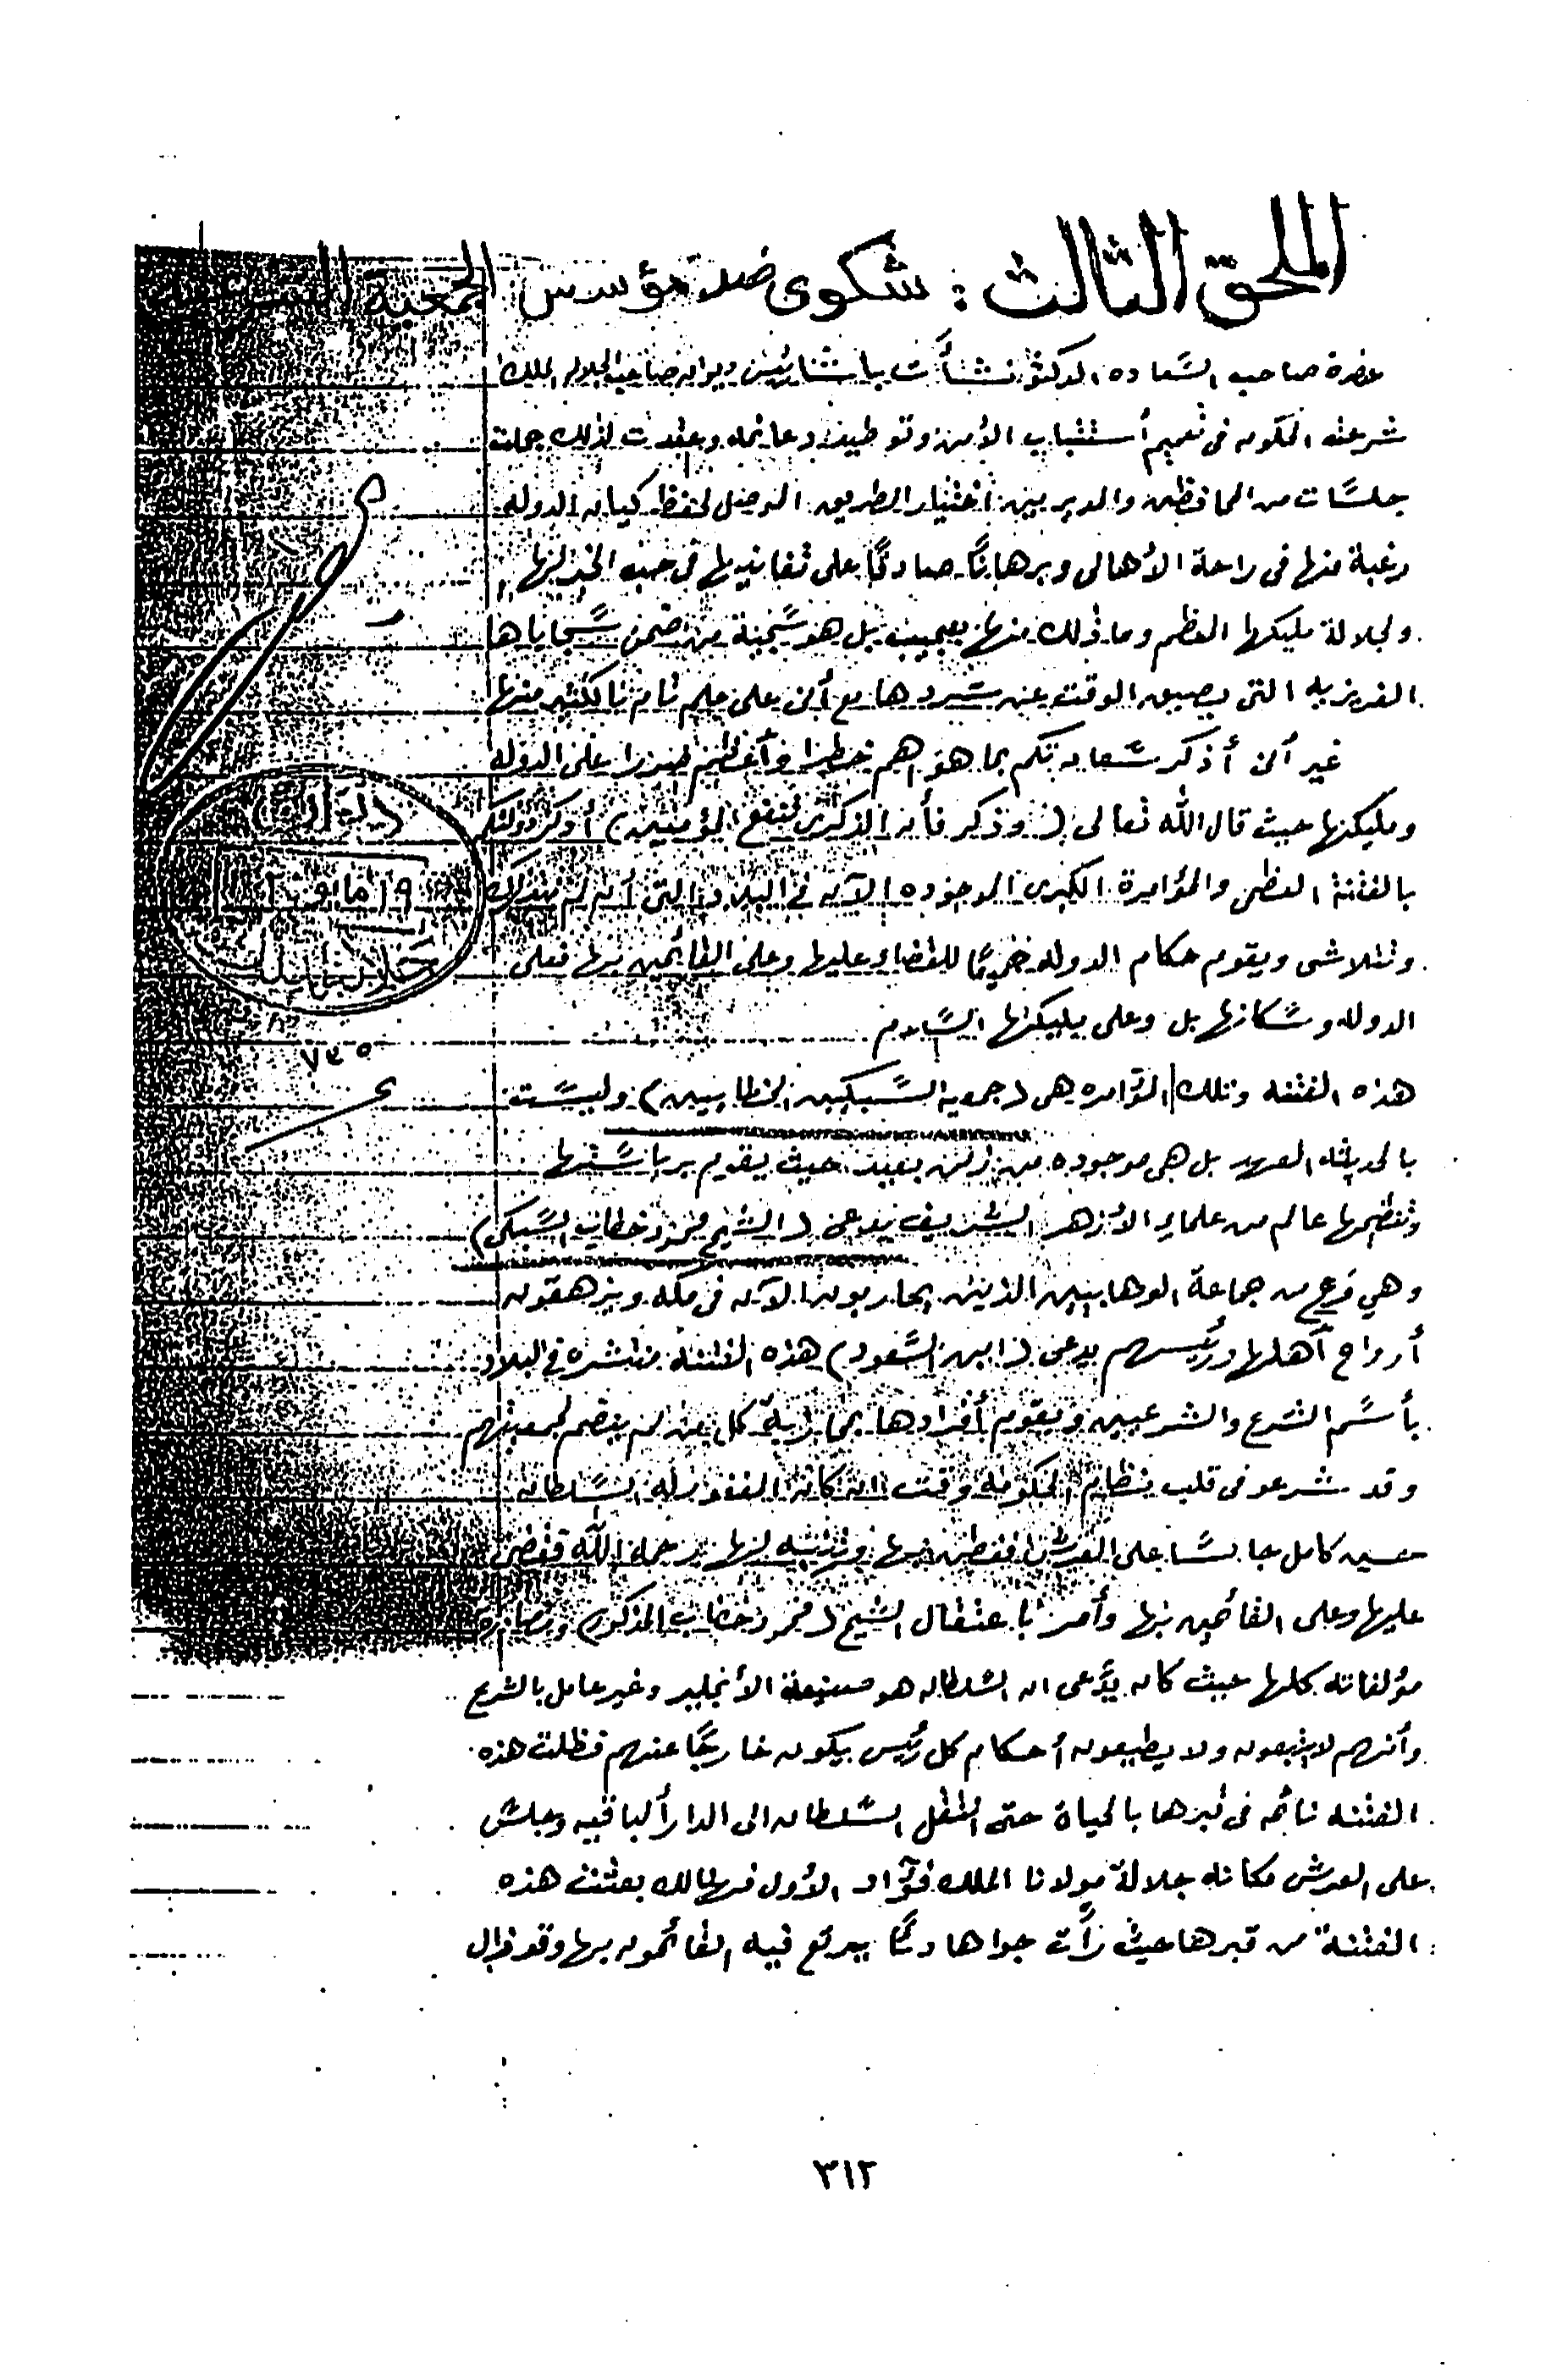 الملحق الثالث : شكوى ضد مؤسس الجمعية
حضرة صاحب السعاده الدكتور نشأت باشا رئيس ديوان صاحب الجلاله الملك
شرعت الحكومه فى تعميم أستتباب الأمن وتوطيد دعائمه وعقدت لذلك جملة
جلسات من المحافظين والمديرين أختيار الطريق الموصل لحفظ كيان الدوله
رغبة منها فى راحة الأهالى وبرهانًا صادقًا على تفانيها فى حب الخير لها
ولجلالة مليكها المعظم وما ذلك منها بعجيب بل هو سجية من ضمن سجاياها
الغريزيه التى يضيق الوقت عن سردها مع أنى على علم تام بالكثير منها
غير أنى أذكر سعادتكم بما هو أهم خطرا وأعظم ضررا على الدوله
ومليكها حيث قال الله تعالى ( وذكر فأن الذكرى تنفع المؤمنين ) أذكر دولتكم
بالفتنة العظمى والمؤامرة الكبرى الموجوده الآن فى البلاد والتى أن لم تتدارك
وتتلاشى ويقوم حكام الدوله جميعًا للقضاء عليها وعلى القائمين بها فعلى
الدوله وسكانها بل وعلى مليكها السلام
ديوان
١٩ مايو
جلالة الملك
٧٣٥
هذه الفتنه وتلك المؤامره هى ( جمعية السبكيين الخطابيين ) وليست
بالحديثه العهد بل هى موجوده من زمن بعيد حيث يقوم برياستها
وتنظيمها عالم من علماء الأزهر الشريف يدعى ( الشيخ محمود خطاب السبكى )
وهي فرع من جماعة الوهابيين الذين يحاربون الآن فى مكه ويزهقون
أرواح أهلها ورئيسهم يدعى ( ابن السعود ) هذه الفتنة منتشره فى البلاد
بأسم الشرع والشرعيين ويقوم أفرادها بمحاربة كل من لم ينضم لجمعيتهم
وقد شرعو فى قلب نظام الحكومة وقت ان كان المغفور له السلطان
حسين كامل جالسًا على العرش ففطن بها وتنبه لها رحمه الله فقضى
عليها وعلى القائمين بها وأمر بأعتقال الشيخ ( محمود خطاب المذكور ) ومصادرة
مؤلفاته كلها حيث كان يدَّعى ان السلطان هو صنيعة الأنجليز وغير عامل بالشرع
وأنهم لا يتبعون ولا يطيعون أحكام كل رئيس يكون خارجًا عنهم فظلت هذه
الفتنه نائمه فى قبرها بالحياة حتى انتقل السلطان الى الدار ألباقيه وجلس
على العرش مكانه جلالة مولانا الملك فؤاد الأول فهنالك بعثت هذه
الفتنة من قبرها حيث رأت جوا هادئًا يرتع فيه القائمون بها وقد
٣١٢